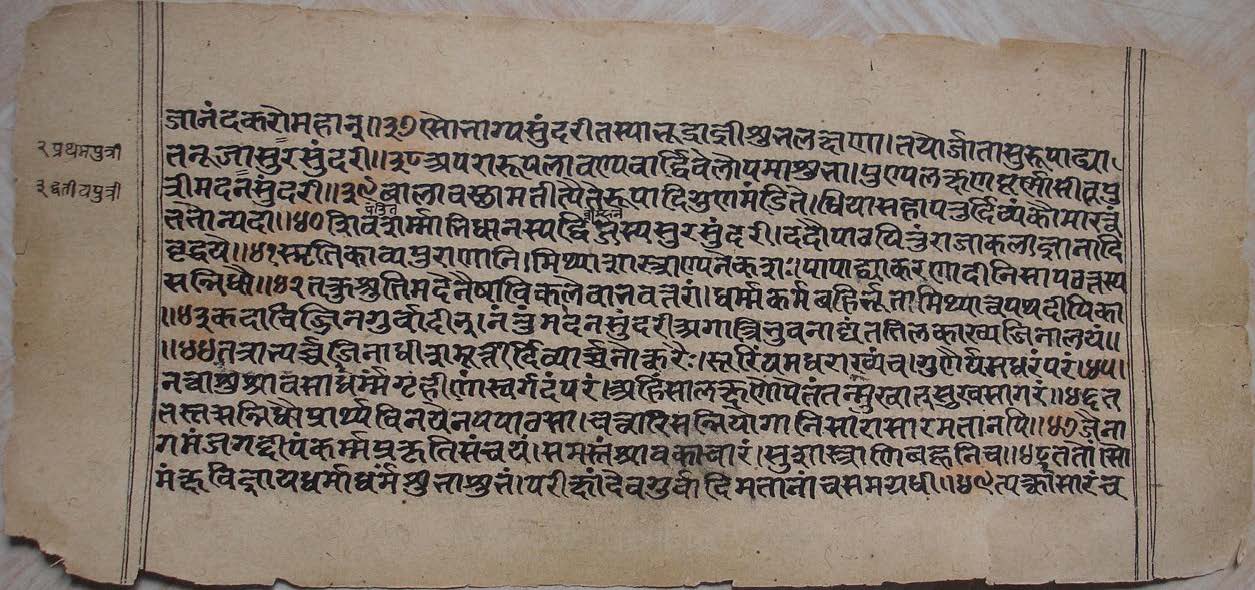 २ प्रथमपुत्री
३ द्वितीयपुत्री
ज्ञानंदकरोमहान्॥३७सौभाग्यसुंदरीतस्याभूद्राज्ञीशुभलक्षणा।तयोर्जातासुरूपाढ्या
तनूजासुरसुंदरी॥३८अपरारूपलावण्यवार्द्धिवेलोपमाशुभा।पुण्यलक्षण
त्रीमदनसुंदरी॥३९बालावस्थामतीत्यैतेरूपादिगुणमंडिते।धियासहापतुर्दिव्यंकौमारत्वं
ततोन्यदा॥४०शिवशर्माभिधानस्यद्विजस्यसुरसुंदरी।ददौपाठयितुंराजाकलाज्ञानादि
पंडित
वृद्धये॥४१स्मृतिकाव्यपुराणानि।मिथ्याशास्त्राण्यनेकशः।पापाढ्याकरणादीनिसापठत्तस्य
सन्निधौ॥४२तत्कुश्रुतिमदेनैषाविकलेवाभवत्तरां।धर्मकर्मबहिर्भूतामिथ्यात्वपथदीपिका
॥४३कदाचिज्जिनगुर्वादीन्।नंतुंमदनसुंदरीअगात्त्रिभुवनाद्यंततिलकाख्यजिनालयं॥
॥४४तत्राभ्यर्च्यजिनाधीशमूर्त्तीर्दिव्यार्चनोत्करैः।सूरिंयमधराख्यंच।गुणैर्यमधरंपरं४५।
नत्वाशुश्रावसाधर्मंगृहीणांस्वर्गदंपरं।अहिंसालक्षणोपेतंतन्मुखात्सुखसागरं॥४६तत
स्तत्सन्निधौप्रार्थ्यविनयेनपपाठसा।चत्वारिसन्नियोगानिसारासारमतानपि॥४७जैना
गमंजगद्दीपंकर्मप्रकृतिसंचयं।समस्तंश्रावकाचारं।सुशास्त्राणिबहूनिच॥४८ततोसौ
मंक्षुविज्ञायधर्माधर्मंशुभाशुभं।परीक्षांदेवगुर्वादिमतानांचसमग्रधी॥४९त्यक्त्वासारंच